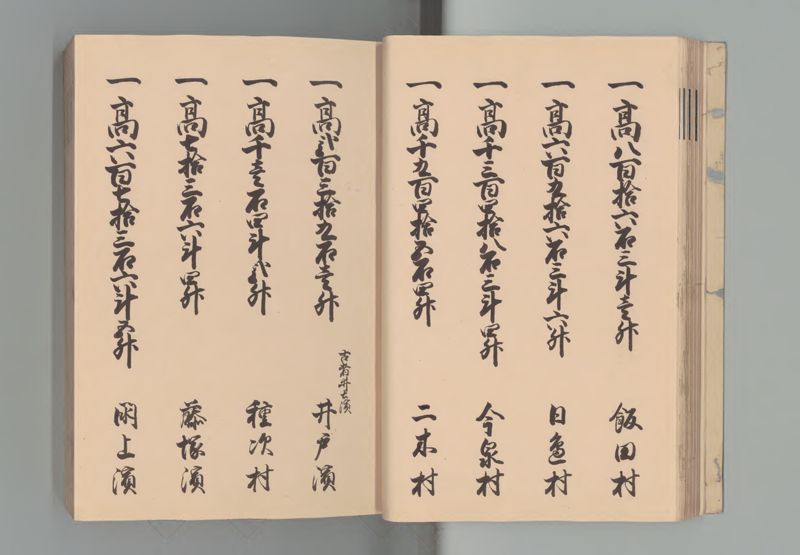 一高八百拾六石三斗壱升 飯田村
一高六百五拾六石三斗六升 日邊村
一高千三百四拾八石三斗四升 今泉村
一高千五百四拾五石四升 二木村
一高弐百三拾九石壱升 井戸濱
一高千壱石四斗弐升 種次村
一高七拾三石六斗四升 藤塚濱
一高六百七拾三石六斗五升 閖上濱